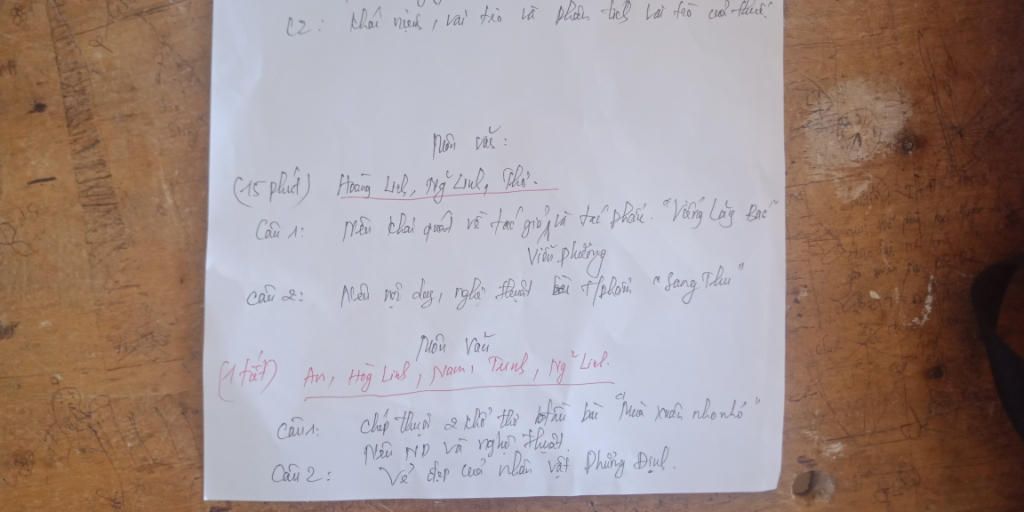 C2: Khái niệm, vai trò và phân tích vai trò của thuế.
Môn văn:
(15 phút) Hoàng Linh, Ng~ Linh, Thư.
Câu 1: Nêu khái quát về tác giả và tác phẩm. "Viếng Lăng Bác"
Viễn Phương
Câu 2: Nêu nội dung, nghệ thuật T/phẩm "Sang Thu"
Môn Văn
(1 tiết) An, Hồg Linh, Nam, Trinh, Ng~ Linh.
Câu 1: Chép thuộc 2 khổ thơ đầu bài "Mùa xuân nho nhỏ"
Nêu ND và nghệ thuật
Câu 2: Vẻ đẹp của nhân vật Phương Định.